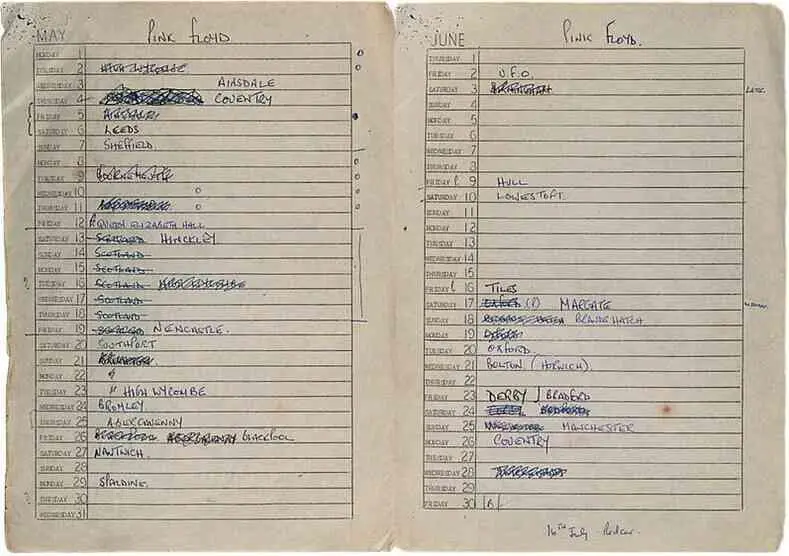 MAY PINK FLOYD
MONDAY 1
TUESDAY 2 HIGH WYCOMBE
WEDNESDAY 3 AINSDALE
THURSDAY 4 COVENTRY
FRIDAY 5
SATURDAY 6 LEEDS
SUNDAY 7 SHEFFIELD.
MONDAY 8
TUESDAY 9 BOURNEMOUTH
WEDNESDAY 10
THURSDAY 11
FRIDAY 12 QUEEN ELIZABETH HALL
SATURDAY 13 SCOTLAND HINCKLEY
SUNDAY 14 SCOTLAND
MONDAY 15 SCOTLAND
TUESDAY 16 SCOTLAND
WEDNESDAY 17 SCOTLAND
THURSDAY 18 SCOTLAND
FRIDAY 19 SCOTLAND NEWCASTLE.
SATURDAY 20 SOUTHPORT
SUNDAY 21
MONDAY 22
TUESDAY 23 " HIGH WYCOMBE
WEDNESDAY 24 BROMLEY
THURSDAY 25 ABERGAVENNY
FRIDAY 26 BLACKPOOL
SATURDAY 27 NANTWICH
SUNDAY 28
MONDAY 29 SPALDING.
TUESDAY 30
WEDNESDAY 31
JUNE PINK FLOYD.
THURSDAY 1
FRIDAY 2 U.F.O.
SATURDAY 3
SUNDAY 4
MONDAY 5
TUESDAY 6
WEDNESDAY 7
THURSDAY 8
FRIDAY 9 HULL
SATURDAY 10 LOWESTOFT.
SUNDAY 11
MONDAY 12
TUESDAY 13
WEDNESDAY 14
THURSDAY 15
FRIDAY 16 TILES
SATURDAY 17 (P) MARGATE
SUNDAY 18 BRANDS HATCH
MONDAY 19
TUESDAY 20 OXFORD.
WEDNESDAY 21 BOLTON. (HORWICH).
THURSDAY 22
FRIDAY 23 DERBY / BRADFORD
SATURDAY 24
SUNDAY 25 MANCHESTER
MONDAY 26 COVENTRY
TUESDAY 27
WEDNESDAY 28
THURSDAY 29
FRIDAY 30
16TH July Redcar.